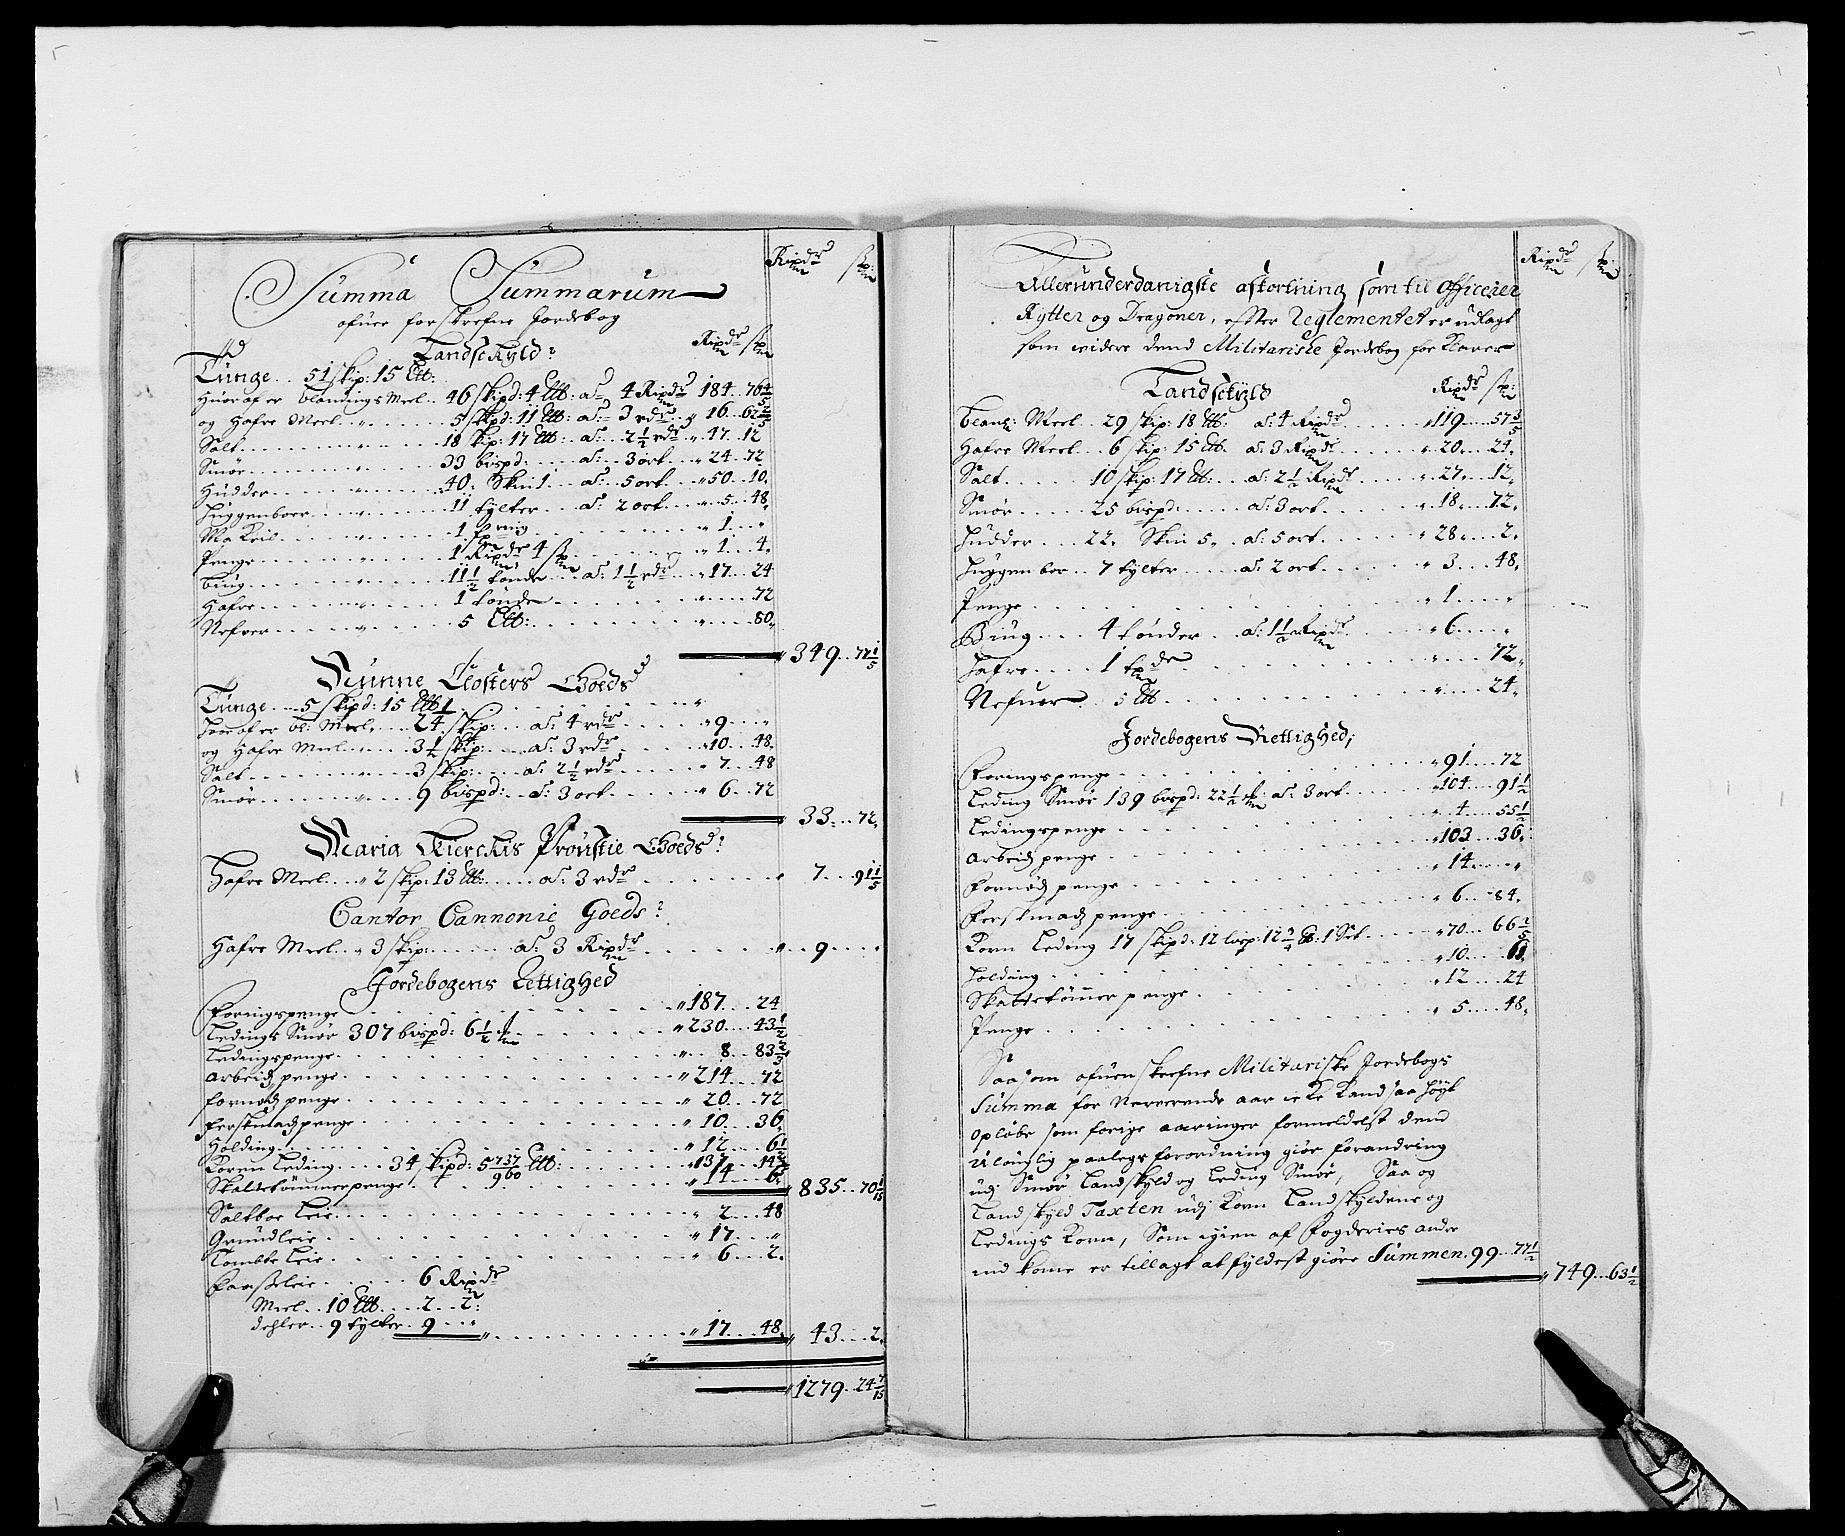 Ripdr sk:
Summa Summarum
ofuer forskrefne Jordebog
Ripdr sk
Landschyld:
Tunge.. 51 skip: 15 Ltt:
Huor af er blandings Meel.. 46 skipd: 4 Ltt: a: 4 Ripdr 184..76 4/5
og Hafre Meel.. 5 skpd: 11 Ltt: a: 3 rdr 16..62 2/5
Salt 18 skip: 17 Ltt: a: 2 1/2 rdr 47..12
Smør 33 bispd: a: 3 ort 24..72
Hudder 40. Skin 1 a: 5 ort 50..10
Huggenboer 11 tylter a: 2 ort 5..48
Makril 1 1
Penge 1 Ripdr 4 sk 1..4
Biug 11 1/2 tønde a: 1 1/2 rdr 17..24
Hafre 1 tønde 72
Nefver 5 Ltt: 80
349..77 1/5
Nunne Closters Goeds
Tunge 5 skipd: 15 Ltt
Huor af er bl: Meel 2 1/4 skip: a: 4 rdr 9
og Hafre Meel 3 1/2 skip: a: 3 rdr 10..48
Salt 3 skip: a: 2 1/2 rdr 7..48
Smør 9 bispd: a: 3 ort 6..72
33..72
Maria Kierckis Proustie Goeds:
Hafre Meel 2 skip: 13 Ltt: a: 3 rdr 7..91 1/5
Cantor Cannonie Goeds:
Hafre Meel 3 skip: a: 3 Ripdr 9
Jordebogens Rettighed
Foringspenge 187..24
Ledings Smør 307 bispd: 6 1/2 230..43 1/2
Ledingspenge 8..83 2/3
Arbeids penge 214..72
Fornødspenge 20..72
Ferskmadpenge 10..36
Holding 12..6 1/2
Koren Leding 34 skipd: 5 737/960 Ltt: 137..14
Skattetømmerpenge 14..6
835..70 1/15
Saltboe Leie 2..48
Grundleie 17
Tombte Leie 6..2
Fossleie 6 Ripdr
Meel.. 10 Ltt 2..2:
dehler.. 9 tylter 9 17..48
43..2
1279..24 7/15
Ripdr sk:
Allerunderdanigste afkortning som til Officerer
Rytter og Dragoner, efter Reglementet er udlagt
som widere dend Militariske Jordebog forklarer
Landschyld Ripdr sk:
bland: Meel 29 skip: 18 Ltt: a: 4 Ripdr 119..57 3/5
Hafre Meel 6 skip: 15 Ltt. a: 3 Ripdr 20..24
Salt 10 skip: 17 Ltt: a: 2 1/2 Ripdr 27..12
Smør 25 bispd: a: 3 ort 18..72
Hudder 22. Skin 5 a: 5 ort 28..2
Huggenboer 7 tylter a: 2 ort 3..48
Penge 1
Biug 4 tønder a: 1 1/2 Ripdr 6
Hafre 1 72
Nefuer 5 Ltt 24
Jordebogens Rettighed;
Foringspenge 91..72
Leding Smør 139 bispd: 22 1/2 a: 3 ort 104..91 1/2
Ledingspenge 4..55 1/2
Arbeids penge 103..36
Fornøds penge 14
Ferskmads penge 6..84
Korn Leding 17 skipd: 12 bisp: 12 3/4 1 Set 70..66 2/5
Holding 10..6
Skattetømmer penge 12..24
Penge 5..48
Saasom ofuenskrefne Militariske Jordebogs
Summa for Nerverende aar icke Kand saa høyt
opløbe som forige aaringer formedelst dend
paalegs forordning giør forandring
udj Smør Landskyld og Leding Smør, Saa og
Landskyld Taxten udj Korn Landskyldene og
Ledings Korn, Som igien af Fogderies andre
ind kome er tillagt at fyldest giøre Summen. 99..77 1/2
749..63 1/2